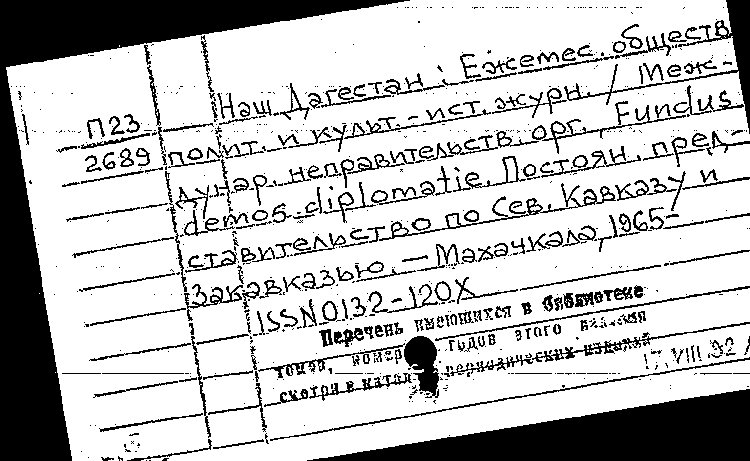 П23
2689
Наш Дагестан : Ежемес. обществ
полит. и культ.-ист. журн. / Меж-
дунар. неправительств. орг., Fundus
demos diplomatie. Постоян. пред-
ставительство по Сев. Кавказу и
Закавказью. — Махачкала, 1965-
ISSN 0132-120X
Перечень имеющихся в библиотеке
томов, номер годов этого издания
смотри в катал периодических изданий
17.VIII.92